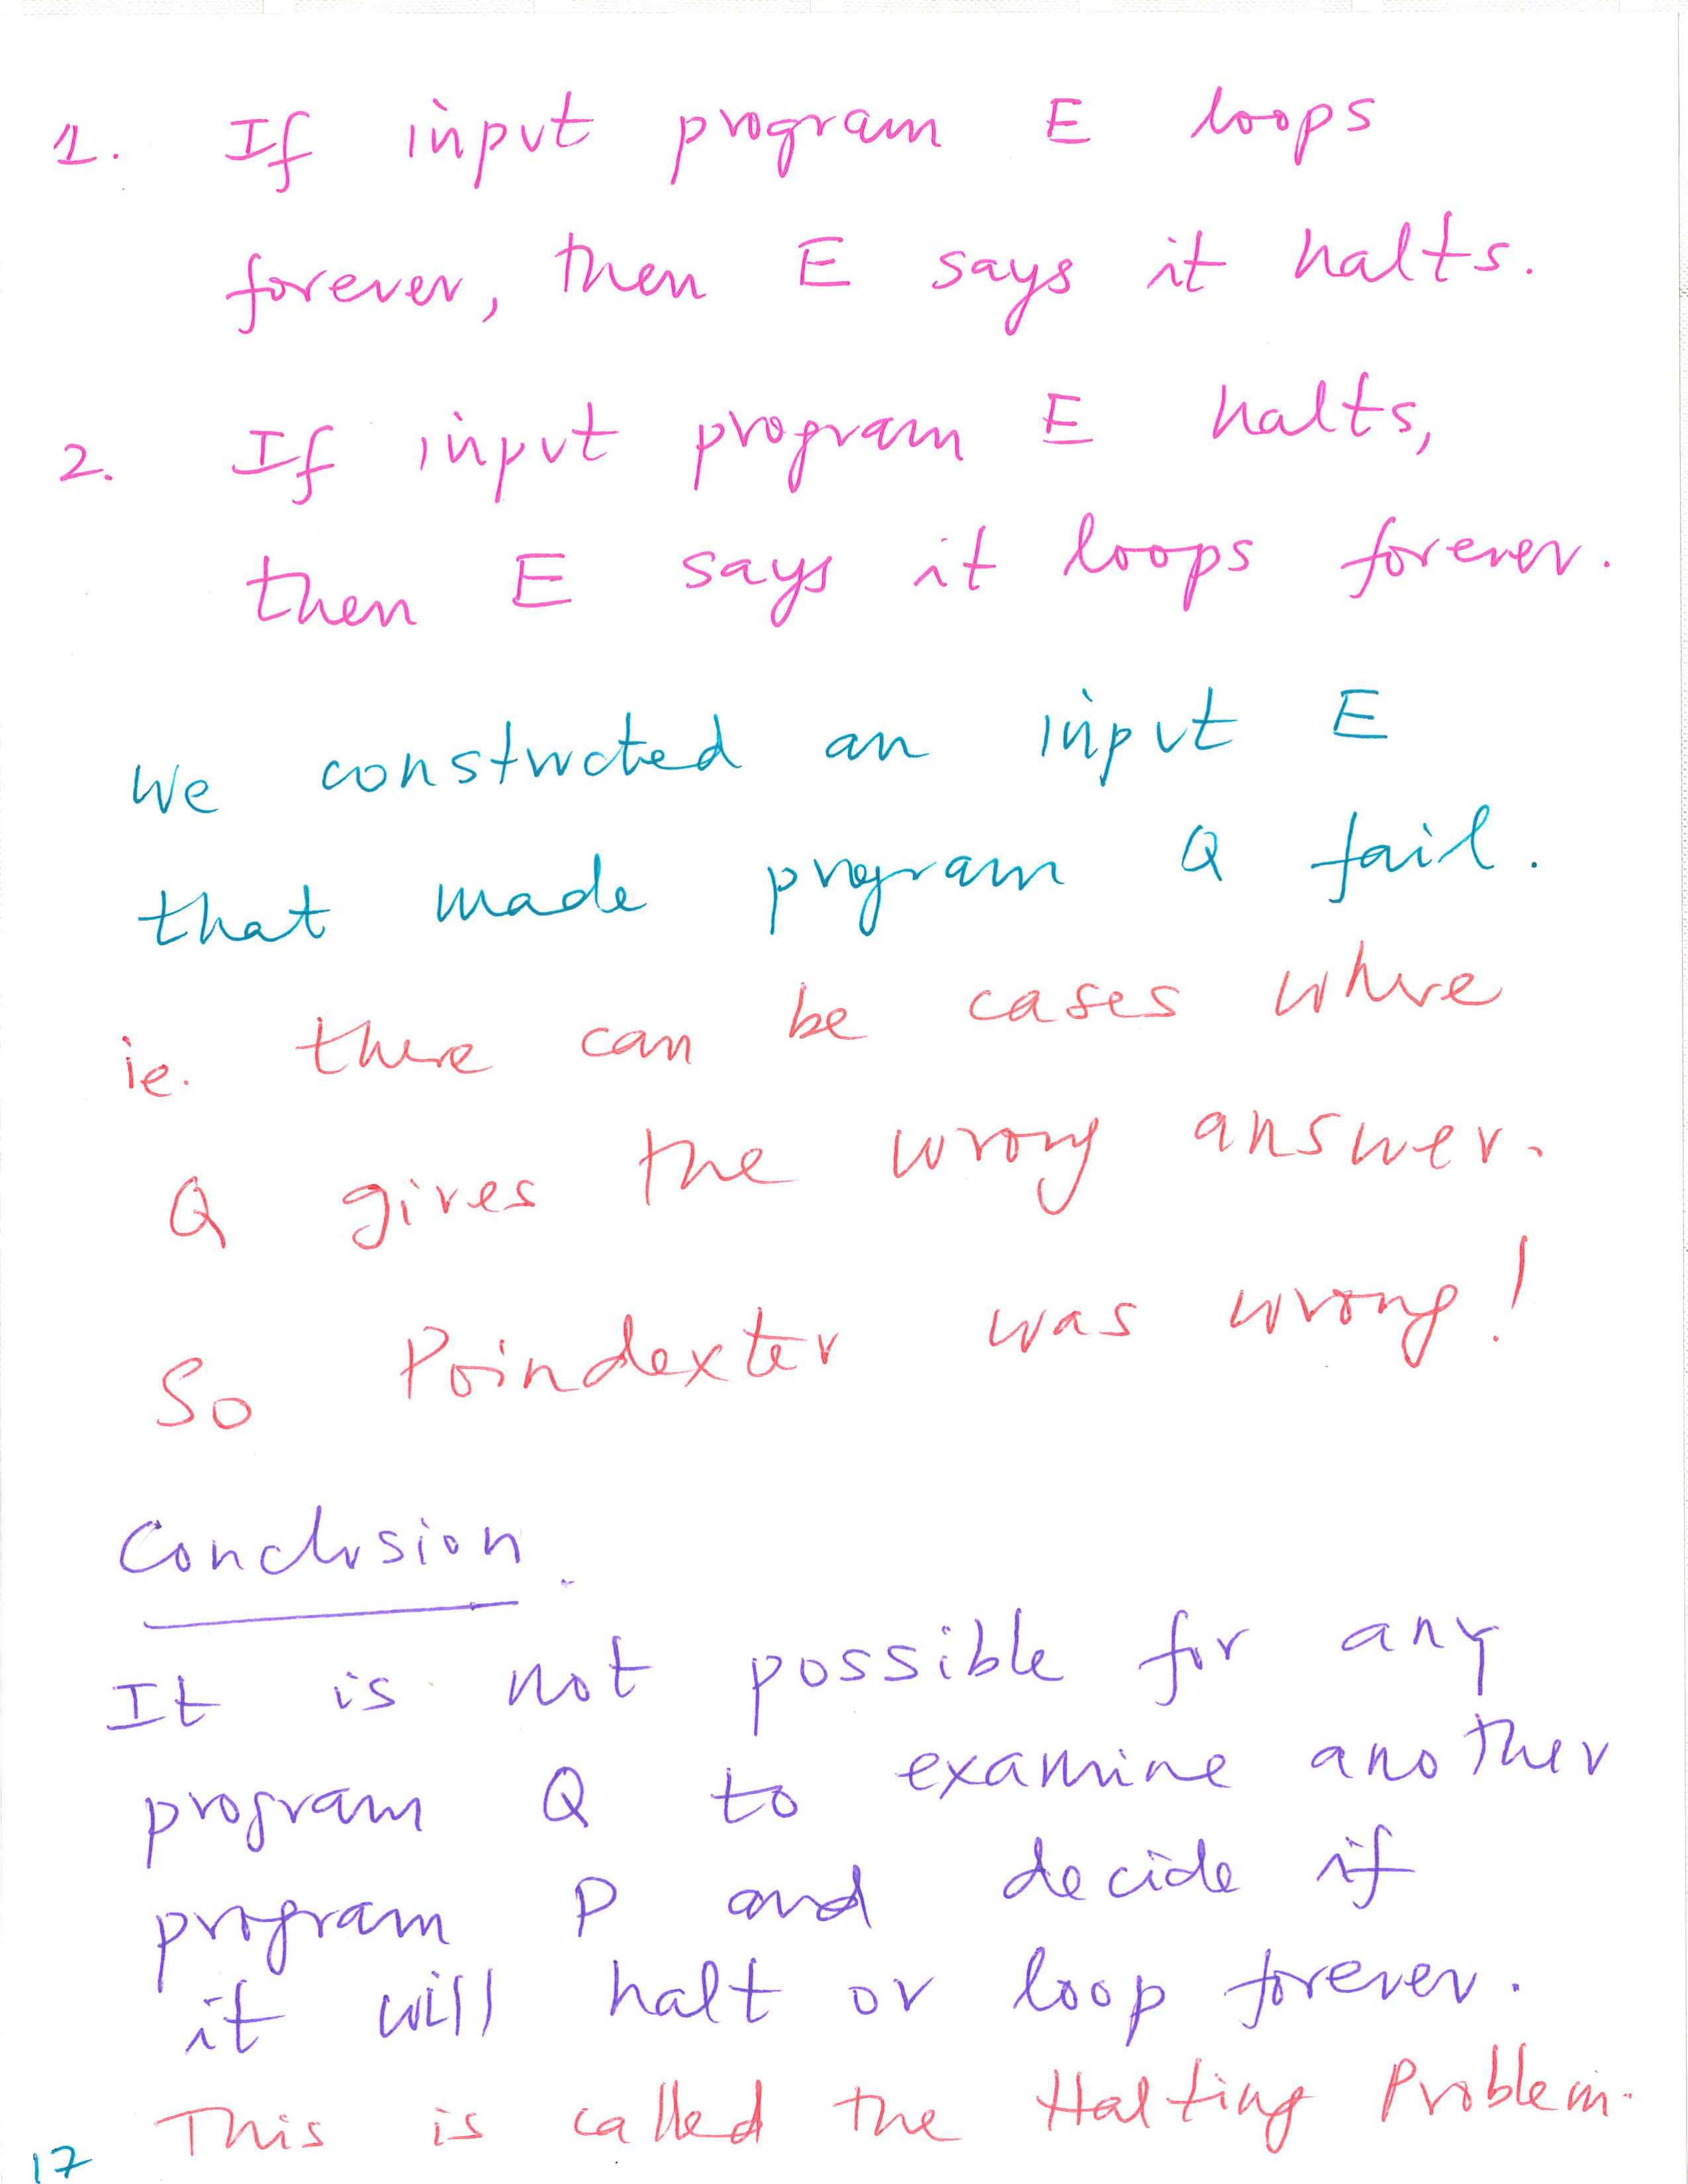 1. If input program E loops
forever, then E says it halts.
2. If input program E halts,
then E says it loops forever.
We constructed an input E
that made program Q fail.
ie. there can be cases where
Q gives the wrong answer.
So Poindexter was wrong!
Conclusion.
It is not possible for any
program Q to examine another
program P and decide if
it will halt or loop forever.
This is called the Halting Problem.
17